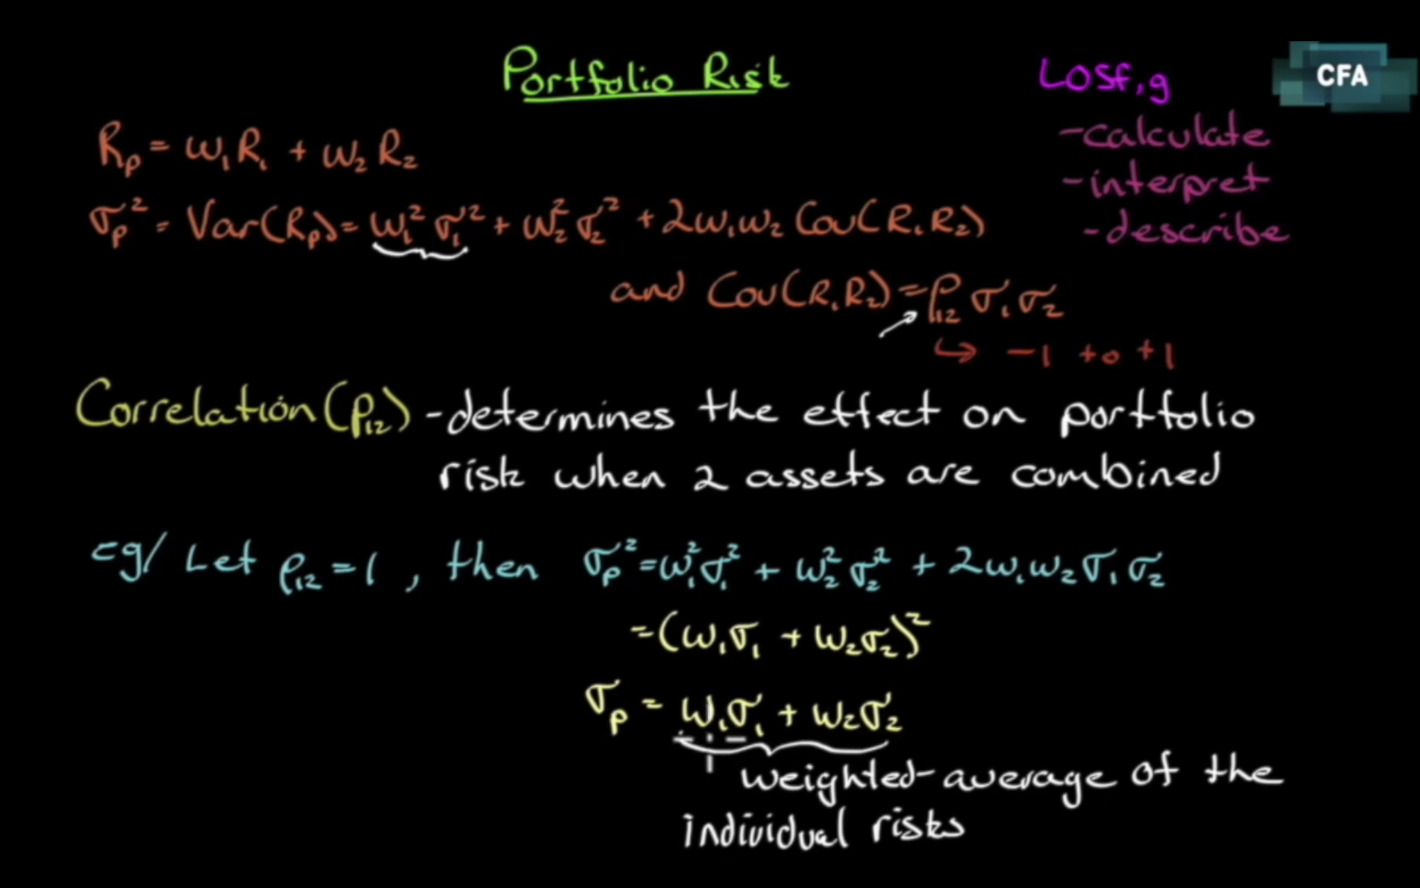 Portfolio Risk
LOSf,g
CFA
-calculate
-interpret
-describe
Rp = w₁R₁ + w₂R₂
σp² = Var(Rp) = w₁²σ₁² + w₂²σ₂² + 2w₁w₂ Cov(R₁R₂)
and Cov(R₁R₂) = ρ₁₂σ₁σ₂
↪ -1 to +1
Correlation(ρ₁₂) -determines the effect on portfolio
risk when 2 assets are combined
eg/ Let ρ₁₂=1, then σp² = w₁²σ₁² + w₂²σ₂² + 2w₁w₂σ₁σ₂
=(w₁σ₁ + w₂σ₂)²
σp = w₁σ₁ + w₂σ₂
weighted-average of the
individual risks